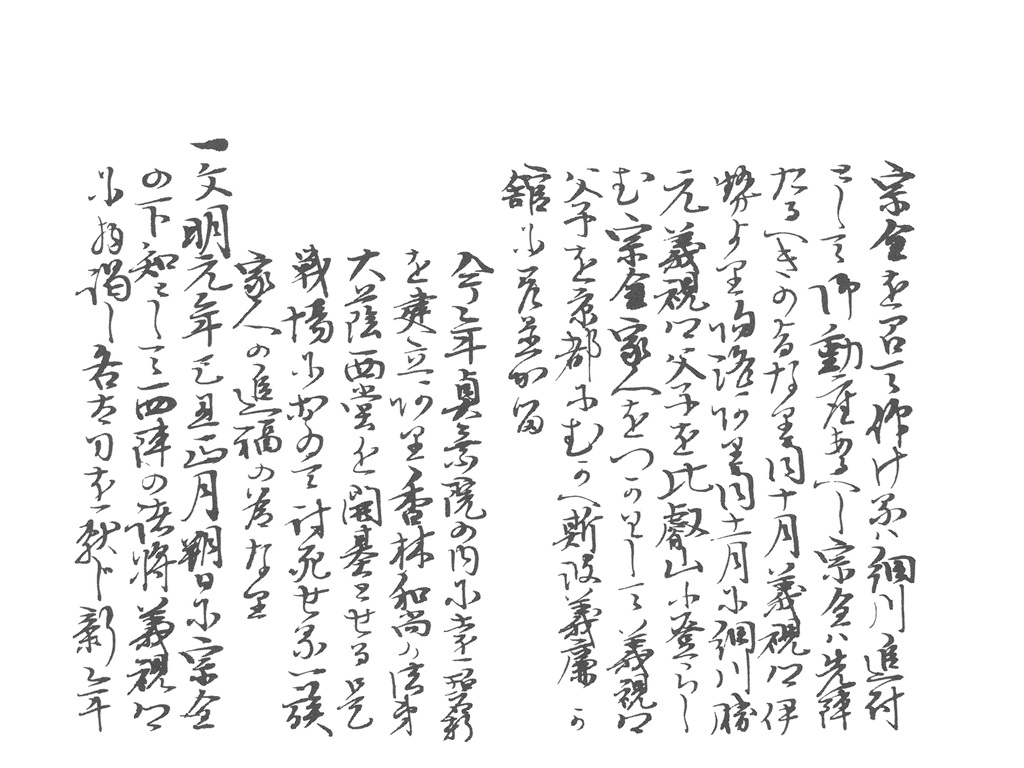 宗全を召て仰けるハ細川追討
として御動座あるへし宗全ハ先陣
たるへきのよしなり同十月義視公伊
勢より帰洛ありし同十一月に細川勝
元義視公父子を比叡山に登らし
む宗全家人をつかわして義視公
父子を京都にむかへ斯波義廉か
館に
今年貞院の内に一
を建立あり香林和尚の法弟
大蔭西堂を開基とせる是
戦場におゐて討死せる一族
家人の追福の為なり
一文明元年己丑正月朔日に宗全
の下知として四陣の諸将義視公
に拝謁し各太刀を献し新年